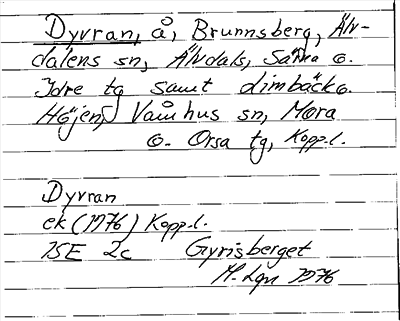 Dyvran, å, Brunnsberg, Älv-
dalens sn, Älvdals, Särna o.
Idre tg samt Limbäck o.
Höjen, Våmhus sn, Mora
o. Orsa tg, Kopp.l.
Dyvran
ek (1976) Kopp.l.
15E 2c Gyrisberget
1976